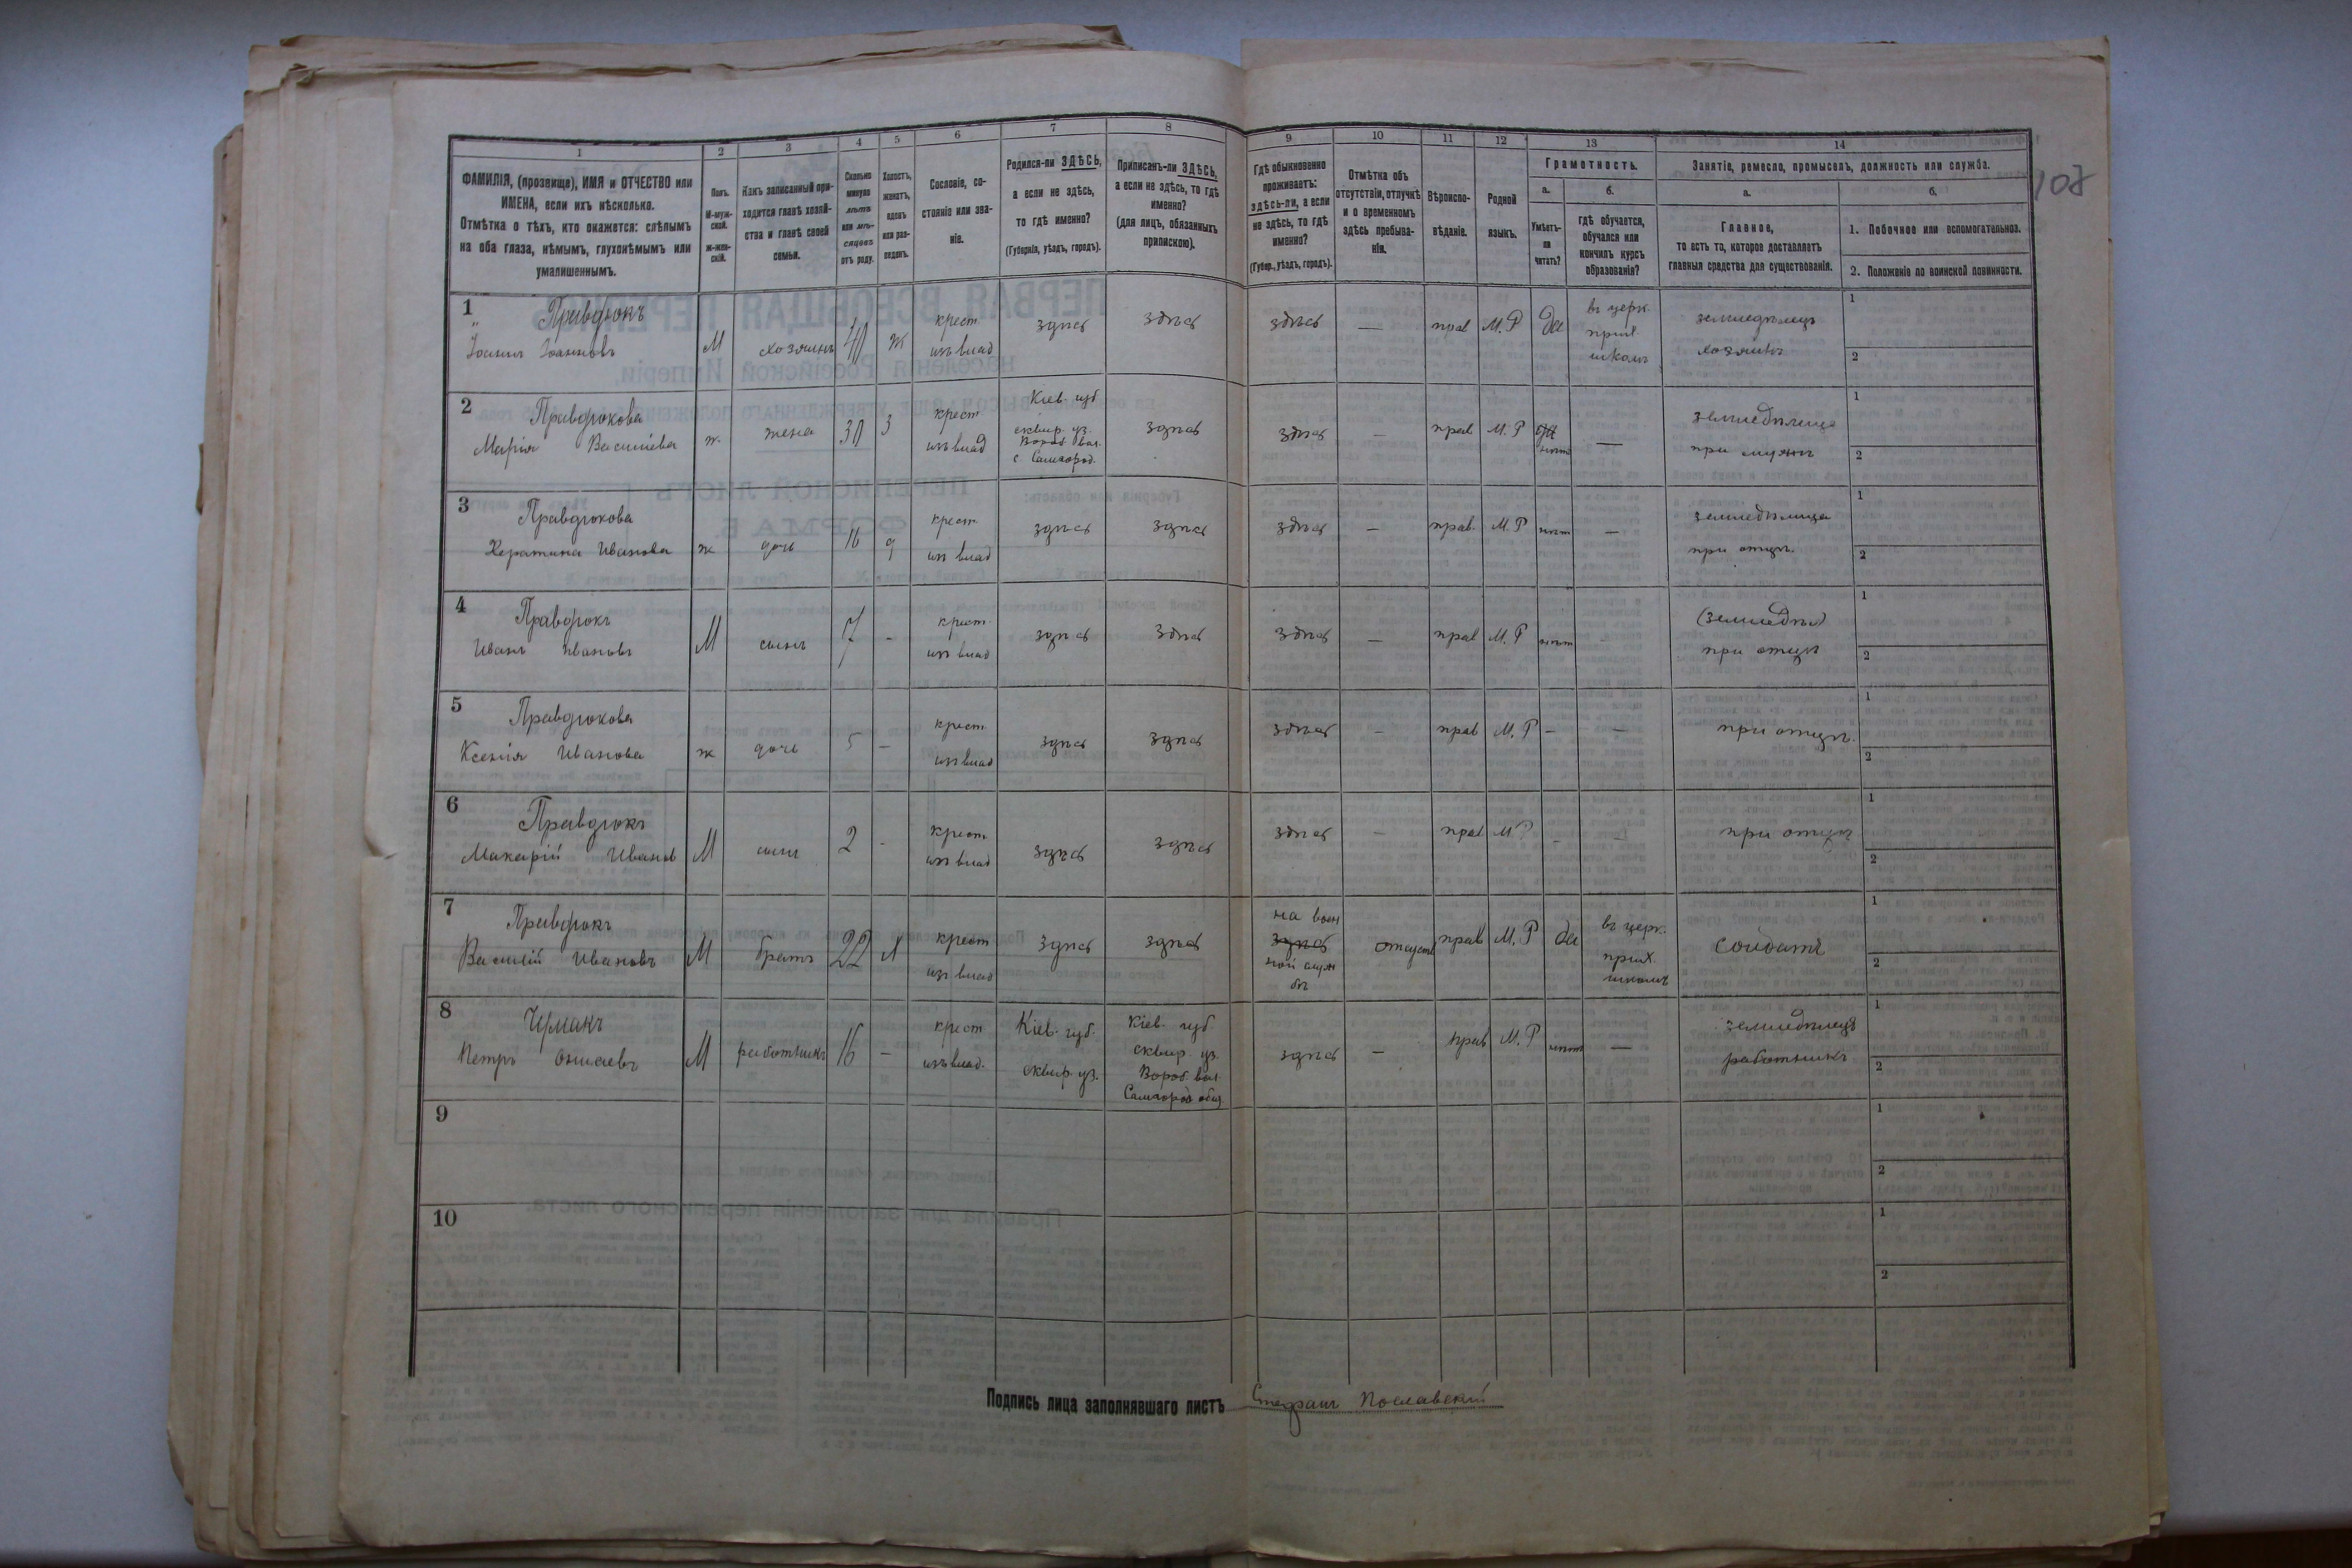 108
1 2 3 4 5 6 7 8 9 10 11 12 13 14
ФАМИЛІЯ, (прозвище), ИМЯ и ОТЧЕСТВО или
ИМЕНА, если ихъ нѣсколько.
Отмѣтка о тѣхъ, кто окажется: слѣпымъ
на оба глаза, нѣмымъ, глухонѣмымъ или
умалишеннымъ.
Полъ.
М-муж-
ской.
ж-жен-
скій.
Какъ записанный при-
ходится главѣ хозяй-
ства и главѣ своей
семьи.
Сколько
минуло
лѣтъ
или мѣ-
сяцевъ
отъ роду.
Холостъ,
женатъ,
вдовъ
или раз-
веденъ.
Сословіе, со-
стояніе или зва-
ніе.
Родился-ли ЗДѢСЬ,
а если не здѣсь,
то гдѣ именно?
(Губернія, уѣздъ, городъ).
Приписанъ-ли ЗДѢСЬ,
а если не здѣсь, то гдѣ
именно?
(для лицъ, обязанныхъ
припискою).
Гдѣ обыкновенно
проживаетъ:
здѣсь-ли, а если
не здѣсь, то гдѣ
именно?
(Губер., уѣздъ, городъ).
Отмѣтка объ
отсутствіи, отлучкѣ
и о временномъ
здѣсь пребыва-
ніи.
Вѣроиспо-
вѣданіе.
Родной
языкъ.
Грамотность.
а. б.
Умѣетъ-
ли
читать?
гдѣ обучается,
обучался или
кончилъ курсъ
образованія?
Занятіе, ремесло, промыселъ, должность или служба.
а. б.
Главное,
то есть то, которое доставляетъ
главныя средства для существованія.
1. Побочное или вспомогательное.
2. Положеніе по воинской повинности.
1
Правдюкъ
Іоаннъ Іоанновъ
М
хозяинъ
40
ж
крест.
изъ влад
здѣсь
здѣсь
здѣсь
—
прав
М. Р
да
въ церк.
прих.
школѣ
земледѣлецъ
хозяинъ
1
2
2
Правдюкова
Марія Василіева
ж.
жена
30
З
крест
изъ влад
Кіев. губ
сквир. уз.
Вороб вол.
с Самгород.
здѣсь
здѣсь
—
прав
М. Р
да
нѣт
—
земледѣлица
при мужѣ
1
2
3
Правдюкова
Ивановa
ж
дочь
16
д
крест.
из влад
здѣсь
здѣсь
здѣсь
—
прав.
М. Р
нѣт
—
земледѣлица
при отцѣ.
1
2
4
Правдюкъ
Иванъ Ивановъ
М
сынъ
7
-
крест.
из влад
здѣсь
здѣсь
здѣсь
—
прав
М. Р
нѣт
-
(земледѣл)
при отцѣ
1
2
5
Правдюкова
Ксенія Иванова
ж
дочь
5
-
крест
из влад
здѣсь
здѣсь
здѣсь
-
прав
М. Р
-
-
при отцѣ.
1
2
6
Правдюкъ
Макарій Иванов
М
сынъ
2
-
крест.
из влад
здѣсь
здѣсь
здѣсь
-
прав
М Р
-
-
при отцѣ
1
2
7
Правдюкъ
Василій Ивановъ
М
братъ
22
х
крест
из влад
здѣсь
здѣсь
на воен
здѣсь
ной служ
бѣ
отсутст
прав
М. Р
да
въ церк.
прих.
школѣ
солдатъ
1
2
8
Чумакъ
Петръ
М
работникъ
16
-
крест
изъ влад.
Кіев. губ.
сквир. уз.
Кіев. губ
сквир. уз.
Вороб. вол.
Самгород общ
здѣсь
—
прав
М. Р
нѣт
—
земледѣлецъ
работникъ
1
2
9
1
2
10
1
2
Подпись лица заполнявшаго листъ Стефанъ Пославскій